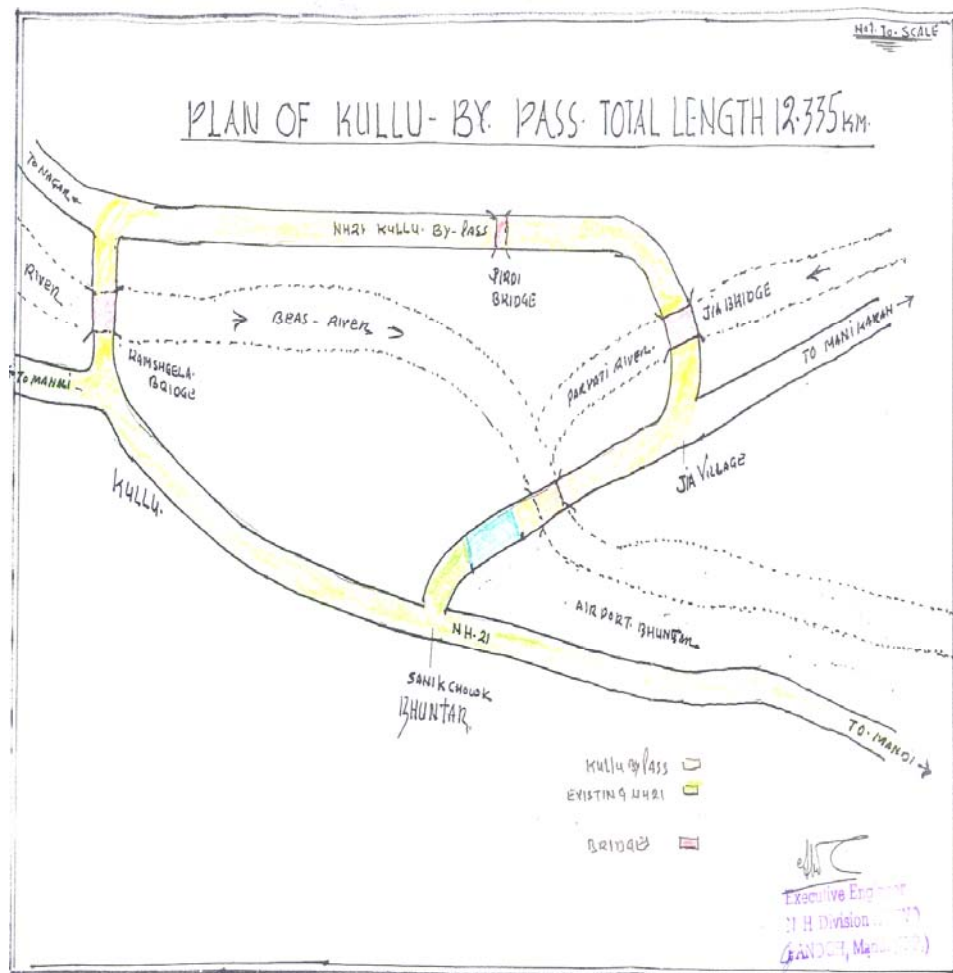 NOT. TO. SCALE
PLAN OF KULLU- BY. PASS. TOTAL LENGTH 12.335 KM.
TO NAGAR
NH21 KULLU. BY-PASS
PIRDI
BRIDGE
RIVER
BEAS - RIVER
JIA BRIDGE
PARVATI RIVER.
TO MANIKARAN
RAMSHEELA.
BRIDGE
TO MANALI
JIA VILLAGE
KULLU.
AIRPORT. BHUNTAR
NH-21
SANIK CHOWK
BHUNTAR.
TO. MANDI
KULLU BY PASS
EXISTING NH21
BRIDGE
Executive Engineer
N H Division